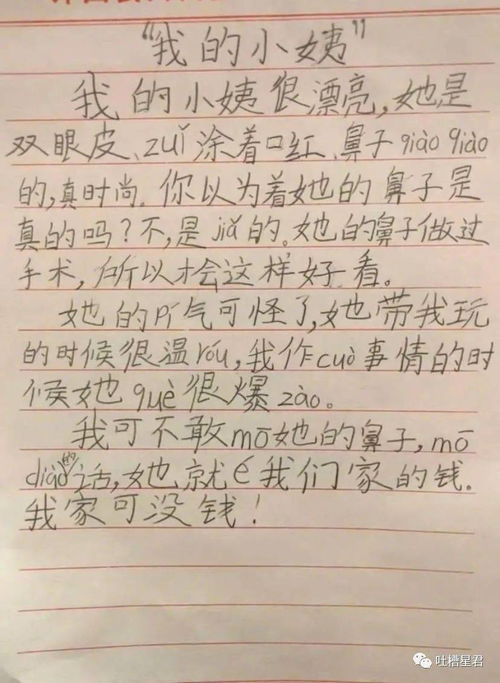 “我的小姨”
我的小姨很漂亮,她是
双眼皮、zuǐ涂着口红、鼻子qiào qiào
的,真时尚.你以为着她的鼻子是
真的吗?不,是jiǎ的。她的鼻子做过
手术,所以才会这样好看。
她的pí气可怪了,她带我玩
的时候很温róu,我作cuò事情的时
候她què很爆zào。
我可不敢mō她的鼻子,mō
diào的话,她就é我们家的钱.
我家可没钱!
吐槽星君